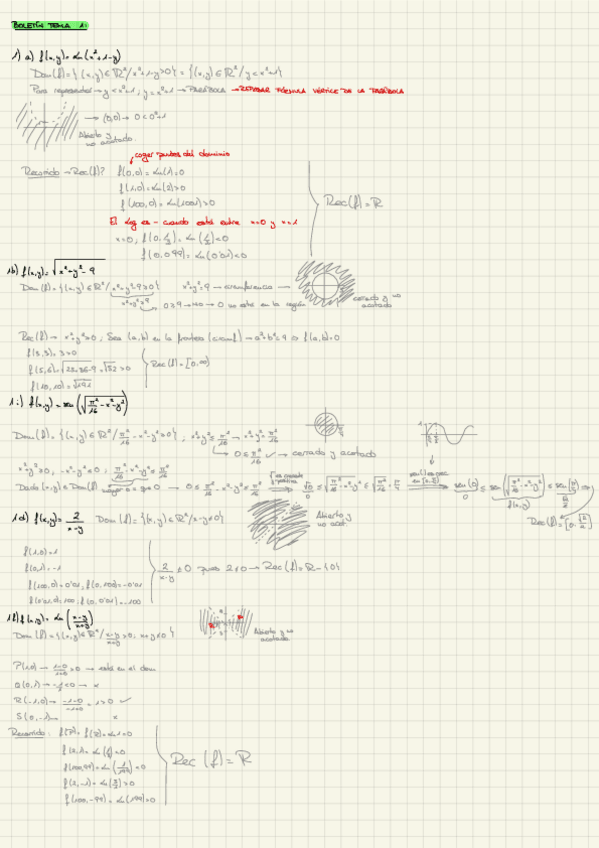 BOLETÍN TEMA 1:
1) a) f(x,y) = Ln(x²+1-y)
Dom(f) = {(x,y) ∈ ℝ² / x²+1-y>0} = {(x,y) ∈ ℝ² / y<x²+1}
Para representar → y<x²+1 ; y=x²+1 → PARÁBOLA → REPASAR FÓRMULA VÉRTICE DE LA PARÁBOLA
→ (0,0) → 0<0²+1
Abierto y
no acotado.
coger puntos del dominio
Recorrido → Rec(f)? f(0,0) = Ln(1) = 0
f(1,0) = Ln(2) > 0
f(100,0) = Ln(1001) > 0
Rec(f) = ℝ
El Log es - cuando está entre x=0 y x=1
f(0,0.99) = Ln(0'01) < 0
1b) f(x,y) = √(x²+y²-9)
Dom(f) = {(x,y) ∈ ℝ² / x²+y²-9≥0} x²+y²=9 → circunferencia →
x²+y²≥9 → 0≥9 → NO → 0 no está en la región
cerrado y no
acotado
Rec(f) → x²+y²≥0 ; Sea (a,b) en la frontera (circunf) → a²+b²=9 ⇒ f(a,b)=0
f(3,3) = 3 > 0
f(5,6) = √(25+36-9) = √52 > 0
f(10,10) = √191
Rec(f) = [0,∞)
1c) f(x,y) = sen(√(π²/16 - x² - y²))
Dom(f) = {(x,y) ∈ ℝ² / π²/16 - x² - y² ≥ 0} ; x²+y² ≤ π²/16 → x²+y² = π²/16
0 ≤ π²/16 ✓ → cerrado y acotado
x²+y²≥0 ; -x²-y²≤0 ; π²/16 - x² - y² ≤ π²/16
Dado (x,y) ∈ Dom(f) → 0 ≤ π²/16 - x² - y² ≤ π²/16 ⇒ √0 ≤ √(π²/16 - x² - y²) ≤ √(π²/16) = π/4 ⇒ sen(0) ≤ sen(√(π²/16 - x² - y²)) ≤ sen(π/4) ⇒
Rec(f) = [0, √2/2]
1d) f(x,y) = 2/(x-y) Dom(f) = {(x,y) ∈ ℝ² / x-y≠0}
Abierto y
no acot.
f(1,0) = 1
f(0,1) = -1
f(100,0) = 0'01, f(0,100) = -0'01
f(0'01,0) = 100, f(0,0'01) = -100
2/(x-y) ≠ 0 pues 2≠0 → Rec(f) = ℝ - {0}
1f) f(x,y) = Ln((x-y)/(x+y))
Dom(f) = {(x,y) ∈ ℝ² / (x-y)/(x+y) > 0; x+y≠0}
Abierto y no
acotado
P(1,0) → (1-0)/(1+0) > 0 → está en el dom
Q(0,1) → -1/1 < 0 → x
R(-1,0) → (-1-0)/(-1+0) = 1 > 0 ✓
S(0,-1) → x
Recorrido: f(P) = f(R) = Ln 1 = 0
f(100,99) = Ln(1/199) < 0
f(2,-1) = Ln(3/1) > 0
f(100,-99) = Ln(199) > 0
Rec(f) = ℝ